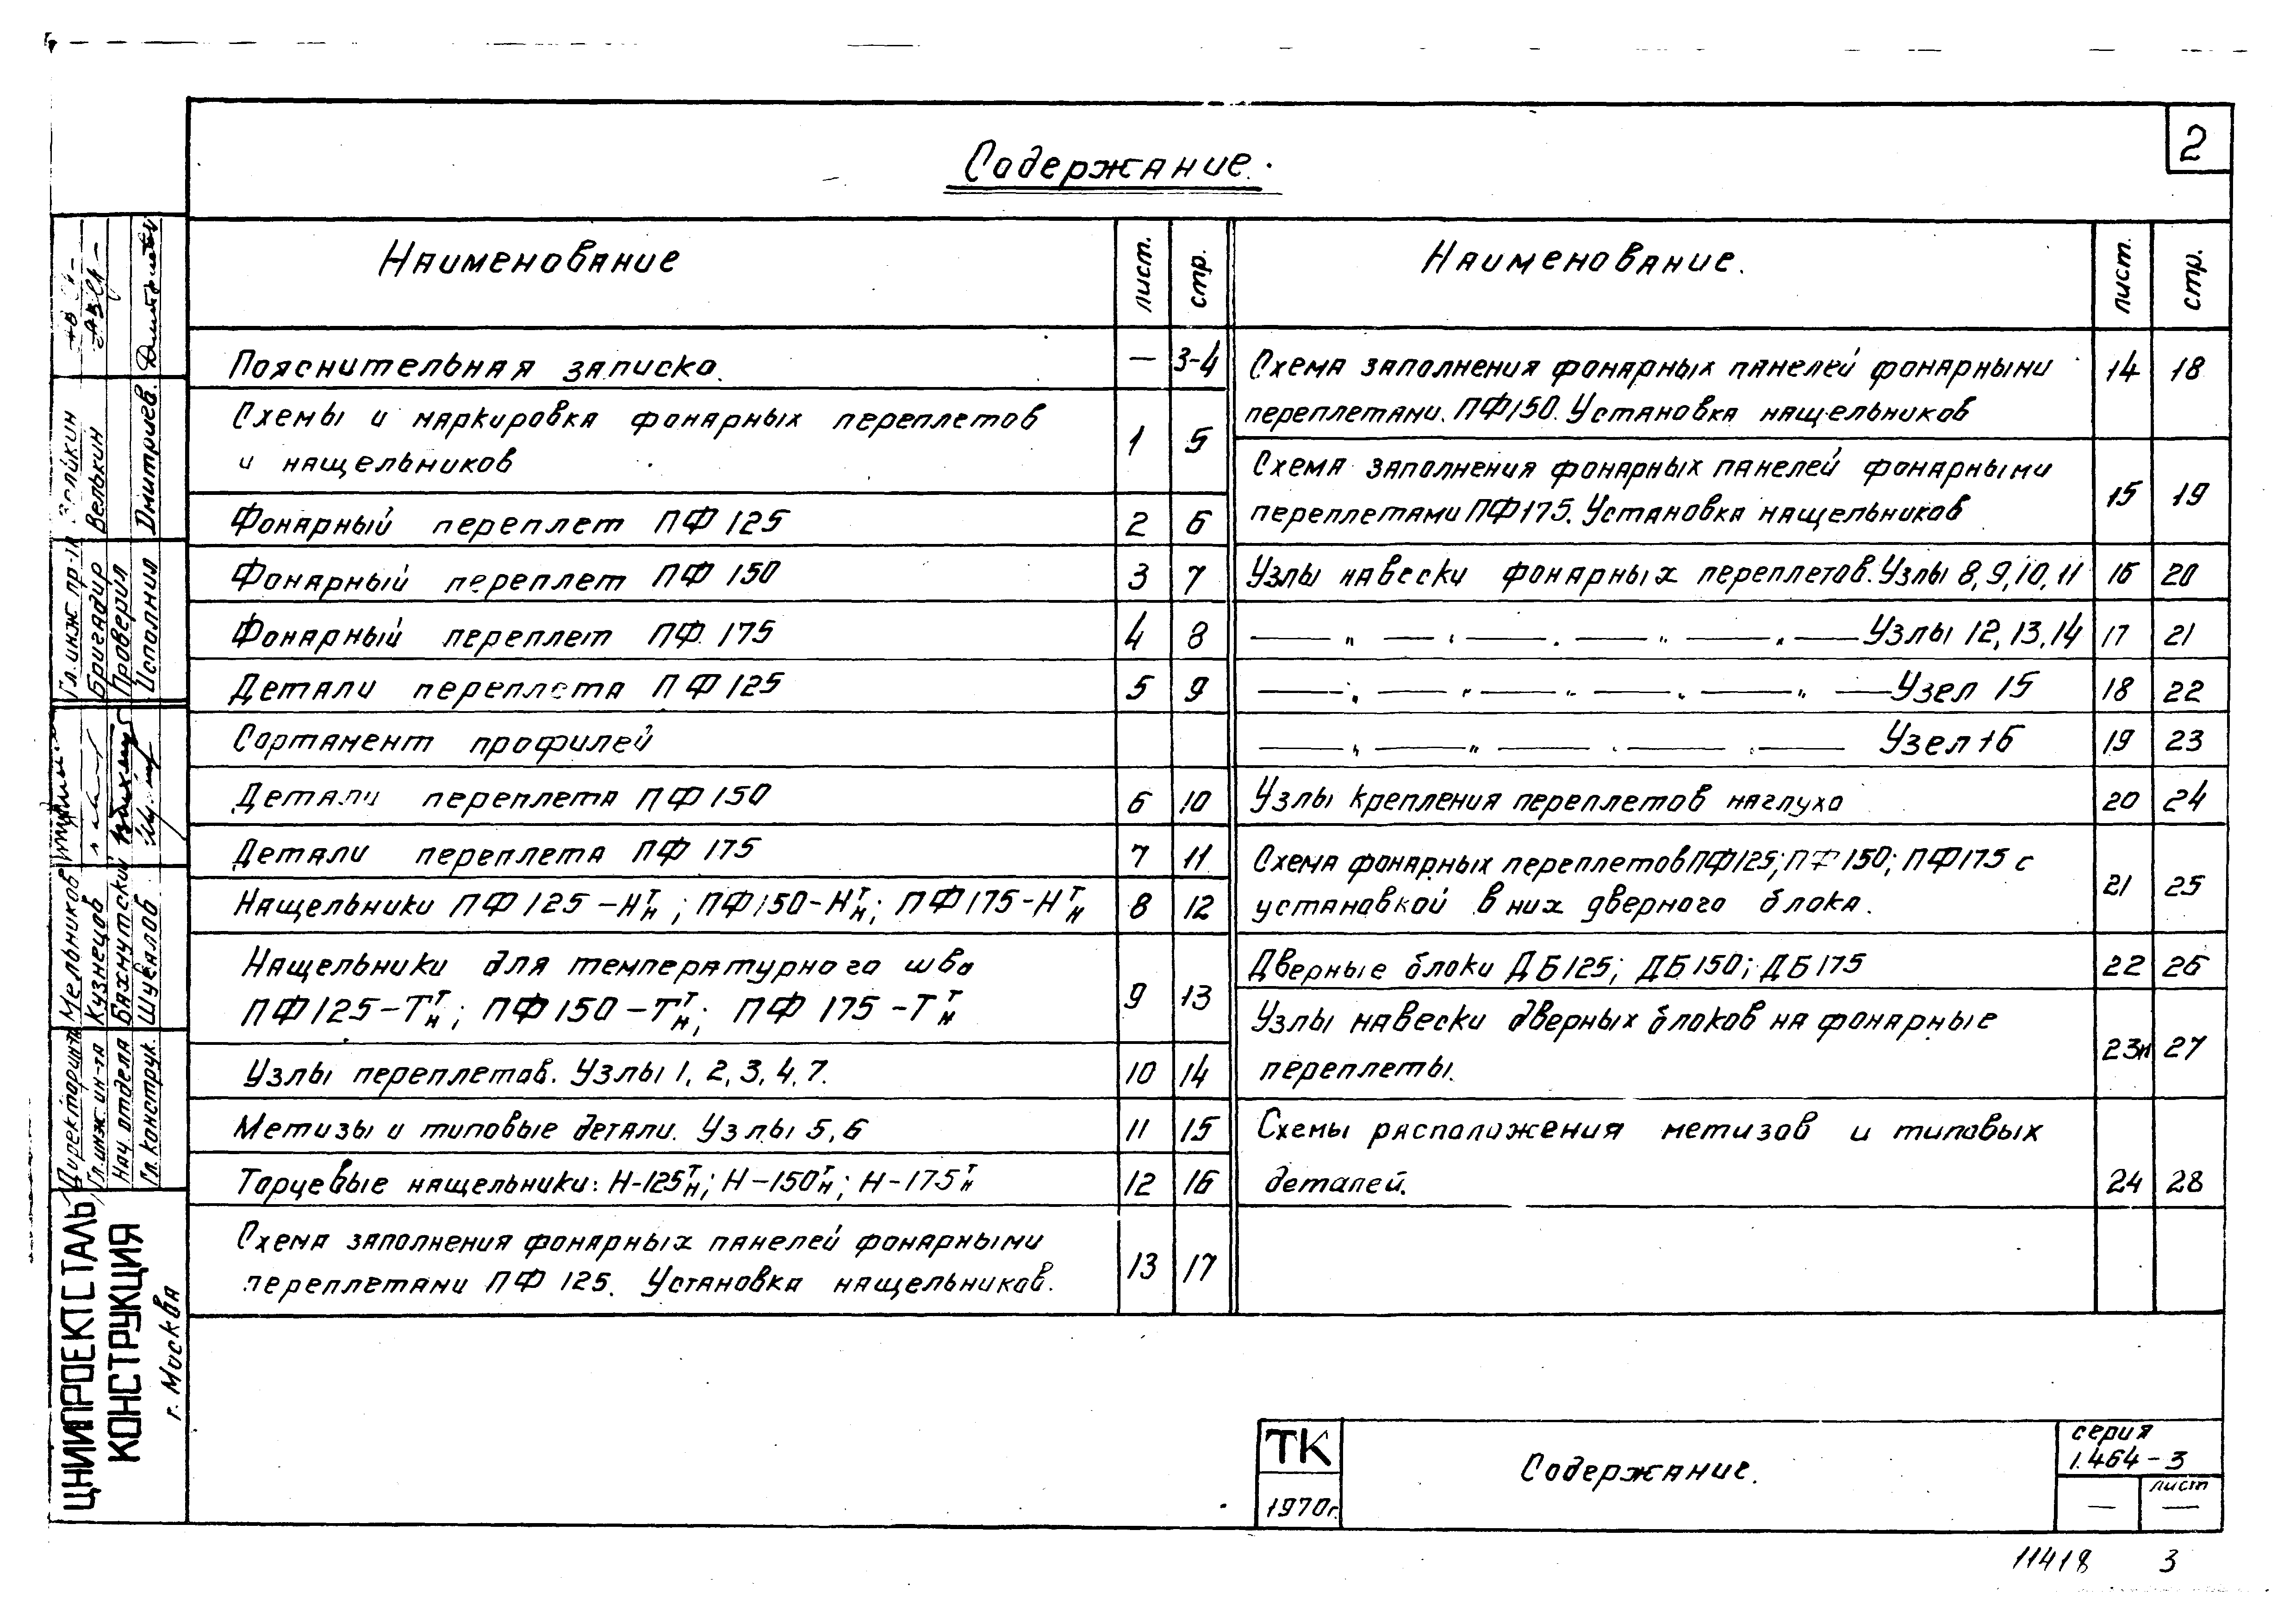 2
Содержание.
Наименование лист. стр.
Пояснительная записка. — 3-4
Схемы и маркировка фонарных переплетов
и нащельников 1 5
Фонарный переплет ПФ 125 2 6
Фонарный переплет ПФ 150 3 7
Фонарный переплет ПФ 175 4 8
Детали переплета ПФ 125 5 9
Сортамент профилей
Детали переплета ПФ 150 6 10
Детали переплета ПФ 175 7 11
Нащельники ПФ 125-Нтн; ПФ150-Нтн; ПФ175-Нтн 8 12
Нащельники для температурного шва
ПФ125-Ттн; ПФ150-Ттн; ПФ 175-Ттн 9 13
Узлы переплетов. Узлы 1, 2, 3, 4, 7. 10 14
Метизы и типовые детали. Узлы 5, 6 11 15
Торцевые нащельники: Н-125тн; Н-150тн; Н-175тн 12 16
Схема заполнения фонарных панелей фонарными
переплетами ПФ 125. Установка нащельников. 13 17
Наименование. лист. стр.
Схема заполнения фонарных панелей фонарными 14 18
переплетами. ПФ150. Установка нащельников
Схема заполнения фонарных панелей фонарными
переплетами ПФ175. Установка нащельников 15 19
Узлы навески фонарных переплетов. Узлы 8, 9, 10, 11 16 20
— " — " — " — " — " — Узлы 12, 13, 14 17 21
— " — " — " — " — " — Узел 15 18 22
— " — " — " — " — Узел 16 19 23
Узлы крепления переплетов наглухо 20 24
Схема фонарных переплетов ПФ125; ПФ150; ПФ175 с
установкой в них дверного блока. 21 25
Дверные блоки ДБ125; ДБ150; ДБ175 22 26
Узлы навески дверных блоков на фонарные
переплеты. 23н 27
Схемы расположения метизов и типовых
деталей. 24 28
ТК
1970г.
Содержание.
серия
1.464-3
лист
— —
11418 3
Гл. инж. пр-та
Бригадир Велькин
Проверил
Исполнил Дмитриев
Директор ин-та Мельников
Гл. инж. ин-та Кузнецов
Нач. отдела Бахмутский
Гл. конструк. Шувалов
ЦНИИПРОЕКТСТАЛЬ
КОНСТРУКЦИЯ
г. Москва